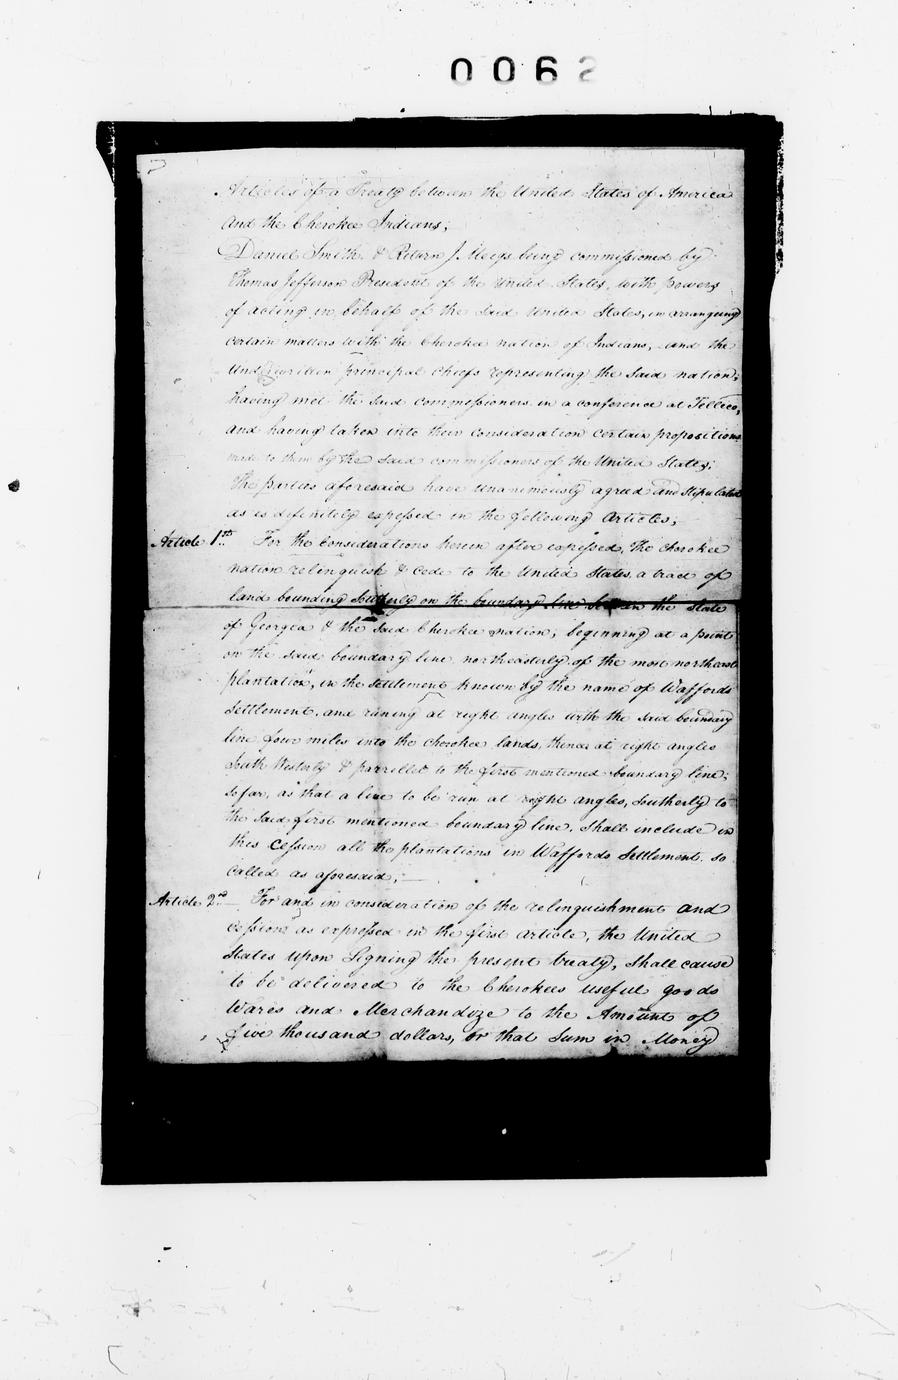 0062
Articles of a Treaty between the United States of America
and the Cherokee Indians;
Daniel Smith & Return J. Meigs being commissioned by
Thomas Jefferson President of the United States, with powers
of acting in behalf of the said United States, in arranging
certain matters with the Cherokee nation of Indians, and the
Underwritten principal chiefs representing the said nation;
having met the said commissioners in a conference at Tellico,
and having taken into their consideration certain propositions
made to them by the said commissioners of the United States;
the parties aforesaid have unanimously agreed and stipulated
as is definitely expressed in the following Articles;
Article 1st. For the considerations herein after expressed, the Cherokee
nation relinquish & cede to the United States a tract of
land bounding Southerly on the boundary line between the State
of Georgea & the said Cherokee nation, beginning at a point
on the said boundary line northeasterly of the most northeast
plantation, in the settlement known by the name of Waffords
Settlement, and runing at right angles with the said boundary
line four miles into the Cherokee lands, thence at right angles
South Westerly & parrellel to the first mentioned boundary line;
so far, as that a line to be run at right angles, Southerly to
the said first mentioned boundary line, shall include in
this cession all the plantations in Waffords Settlement, so
called as aforesaid;
Article 2nd For and in consideration of the relinquishment and
cession as expressed in the first article, the United
States upon Signing the present treaty, shall cause
to be delivered to the Cherokees useful goods
Wares and Merchandize to the Amount of
five thousand dollars, or that Sum in Money